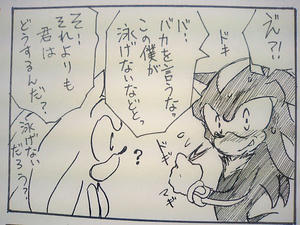 ぎくっ!!
ドキ
バ…
バカを言うなっ
この僕が
泳げないなどとっ
ドギ
マギ
そ…
それよりも
君は
どうするんだ?
泳げない
だろう?
?